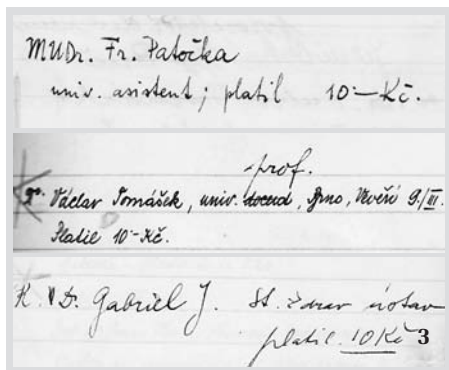 MUDr. Fr. Patočka
univ. asistent; platil 10·— Kč.
prof.
Václav Tomášek, univ. docend, Brno, Úvoz 9./III.
Platil 10·- Kč.
K. Dr. Gabriel J. St. zdrav ústav
platil 10 Kč 3